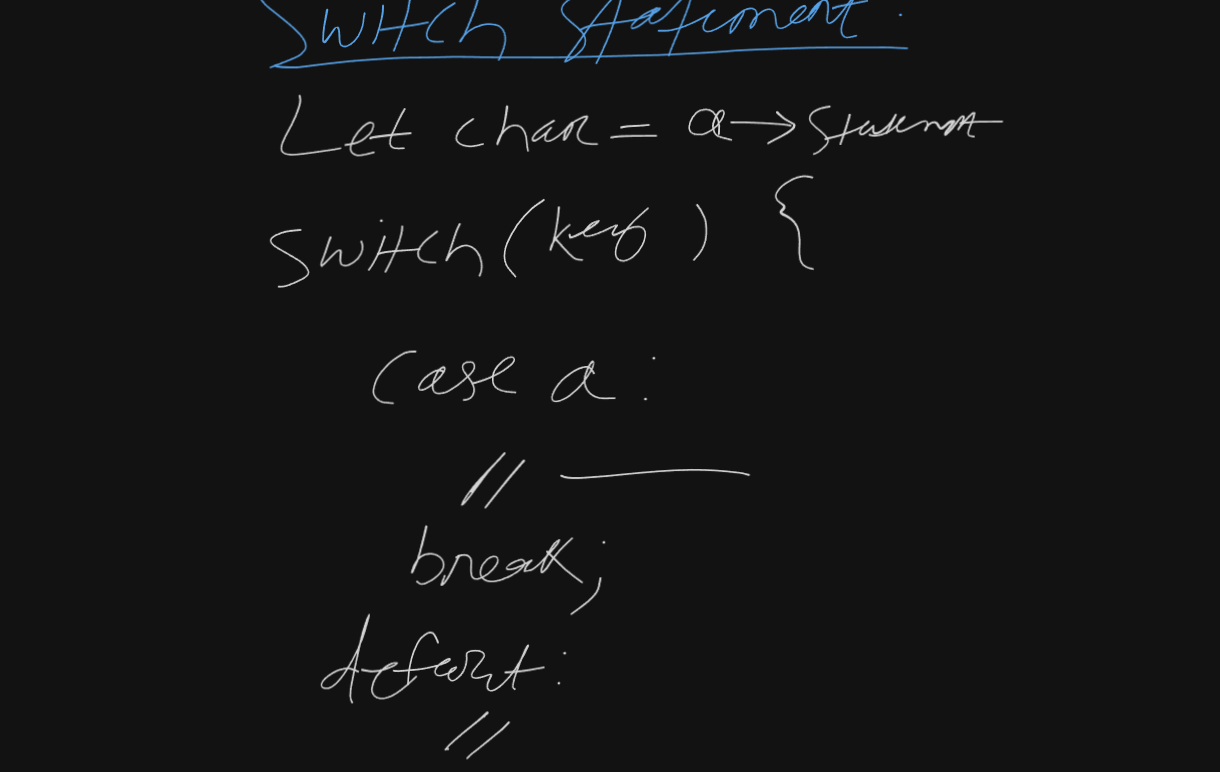 Switch Statement:
Let char = a → Statement
Switch (key) {
Case a:
//
break;
default:
//